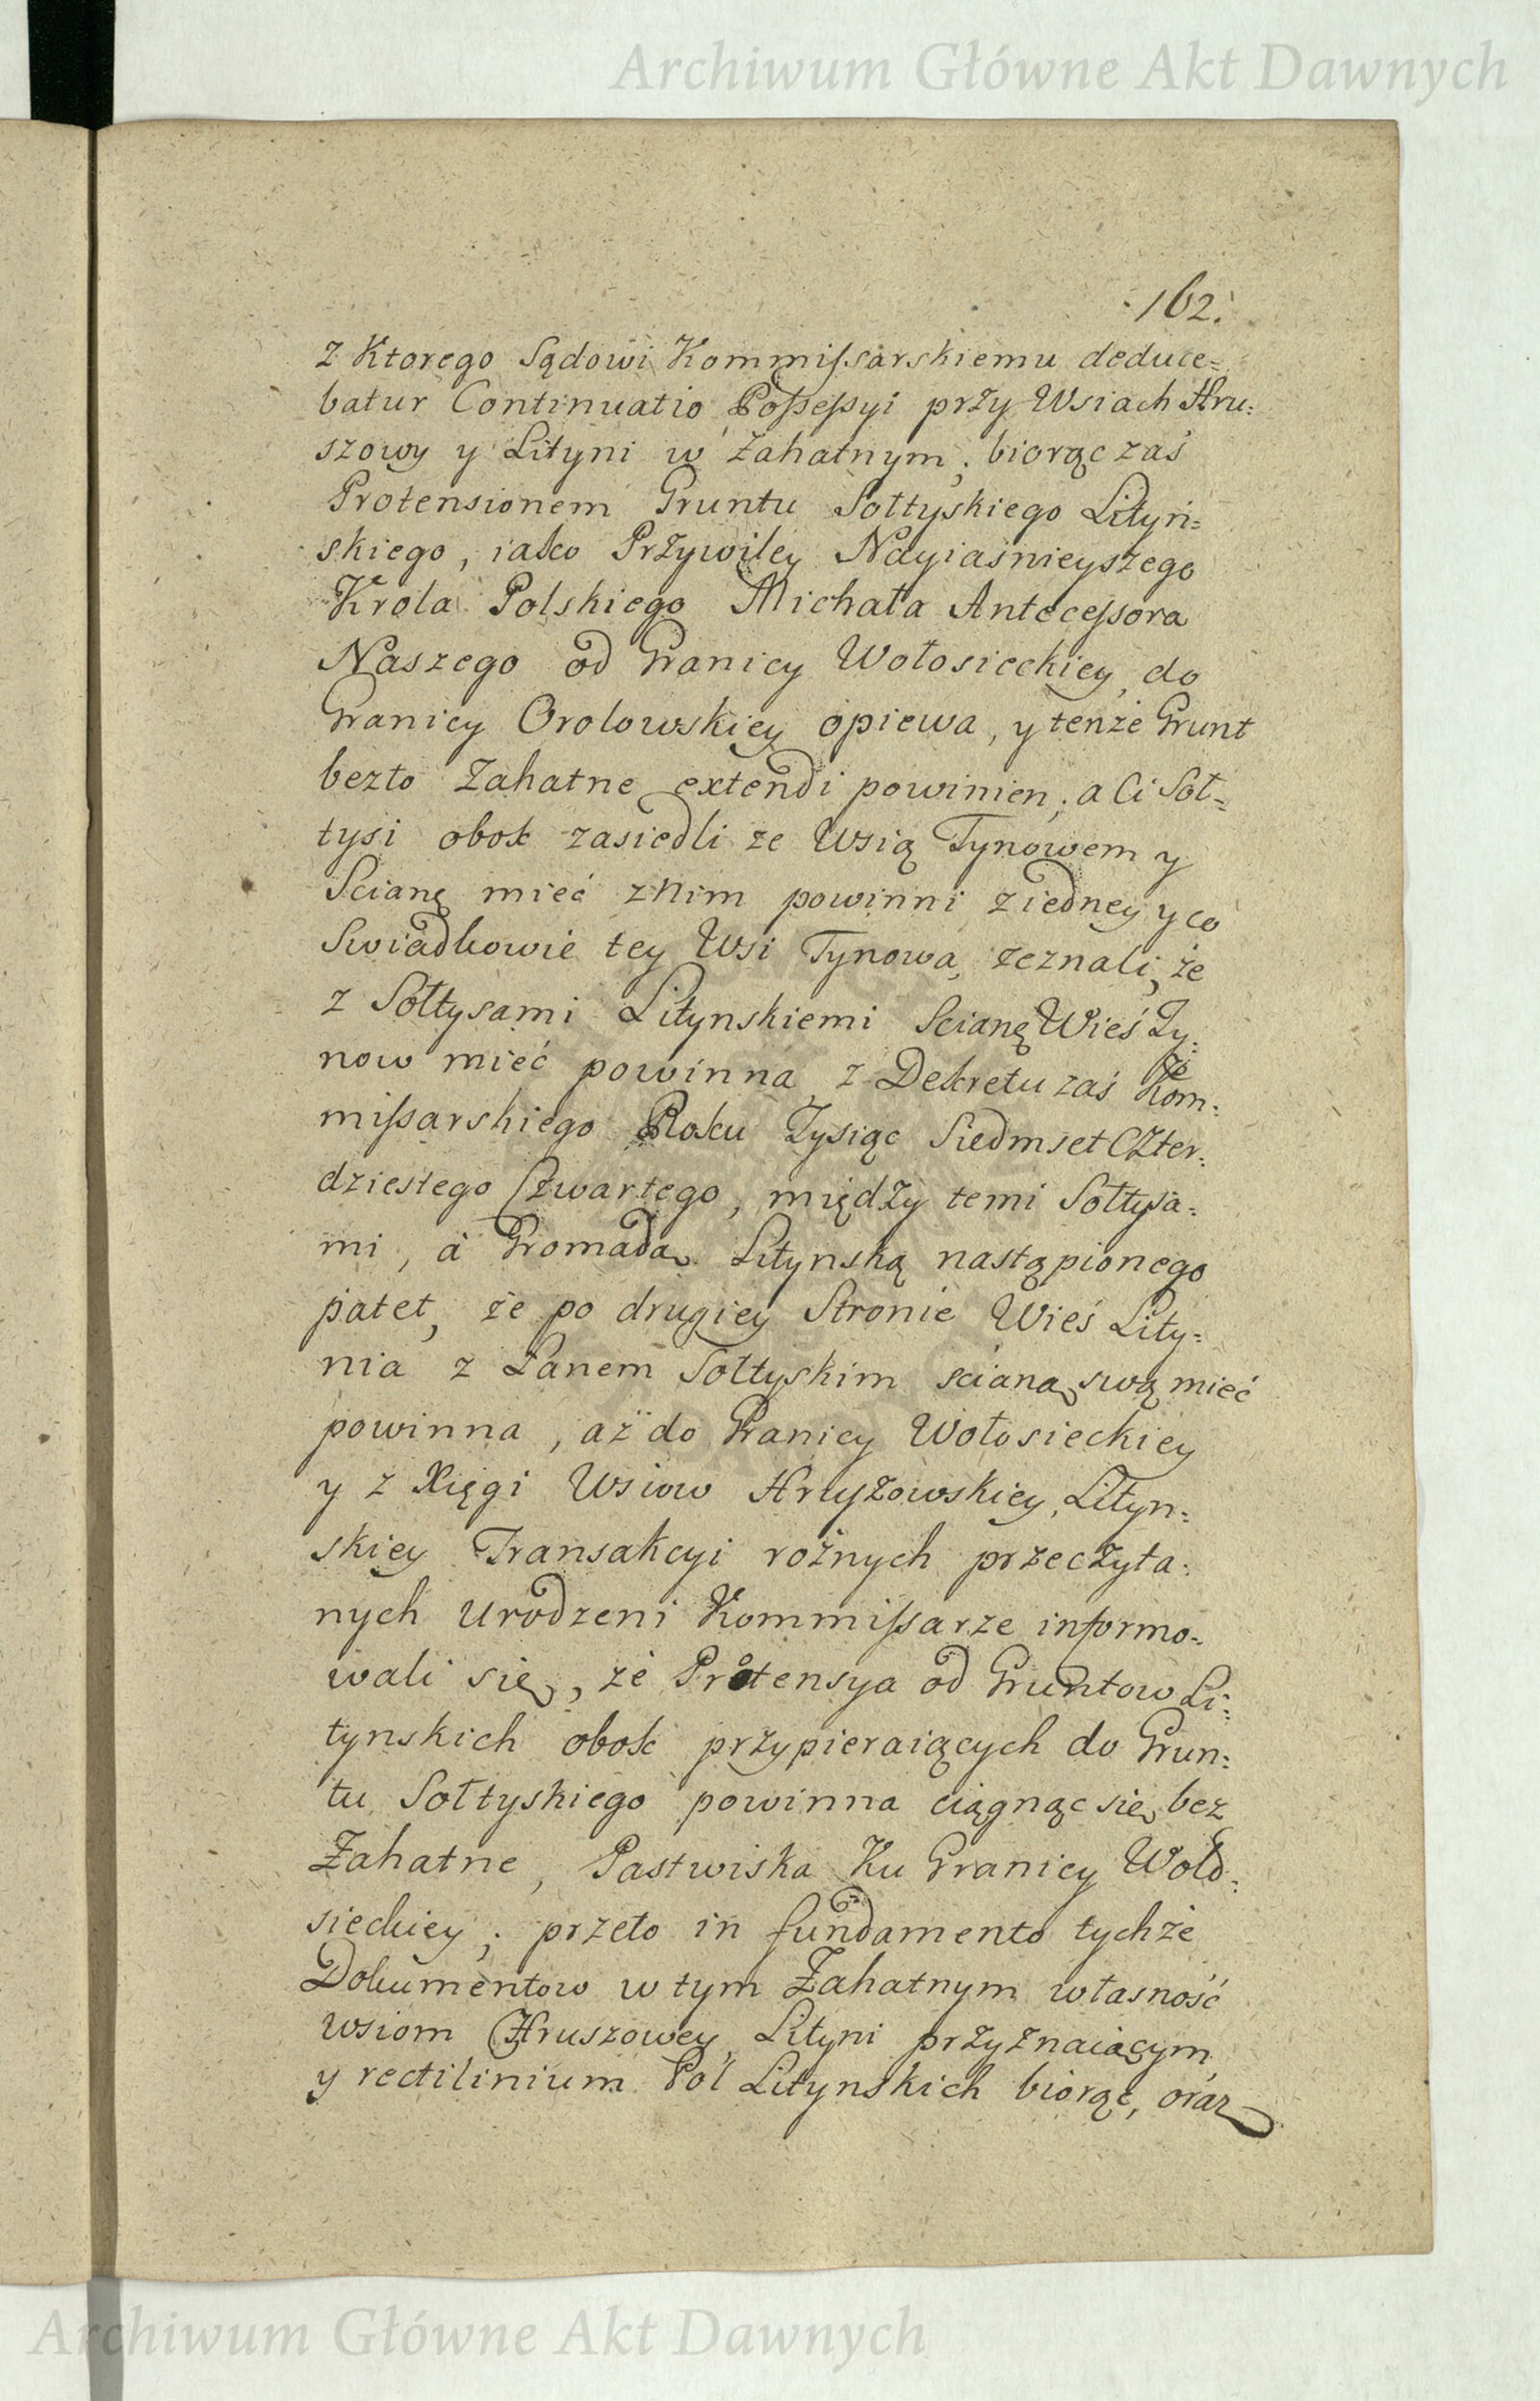 Archiwum Główne Akt Dawnych
162.
z Ktorego Sądowi Kommiſsarskiemu deduce=
batur Continuatio Poſseſsyi przy Wsiach Hru:
szowy y Lityni w Zahatnym; biorąc zaś
Protensionem Gruntu Sołtyskiego Lityń=
skiego, iako Przywiley Nayiaśnieyszego
Krola Polskiego Michała Anteceſsora
Naszego od Granicy Wołosieckiey, do
Granicy Orolowskiey opiewa, y tenże Grunt
bezto Zahatne extendi powinien; a Ci Soł=
tysi obok zasiedli ze Wsią Tynowem y
Scianę mieć z Nim powinni z iedney y co
Swiadkowie tey Wsi Tynowa, zeznali, że
z Sołtysami Litynskiemi Scianę Wieś Ty:
now mieć powinna, z Dekretu zaś Kom:
miſsarskiego Roku Tysiąc Siedmset Czter:
dziestego Czwartego, między temi Sołtysa:
mi, à Gromadą Litynską nastąpionego
patet, że po drugiey Stronie Wieś Lity:
nia z Łanem Sołtyskim scianą swą mieć
powinna, aż do Granicy Wołosieckiey
y z Xięgi Wsiow Hruszowskiey, Lityn:
skiey Transakcyi rożnych przeczyta:
nych Urodzeni Kommiſsarze informo:
wali się, że Protensya od Gruntow Li:
tynskich obok przypieraiących do Grun:
tu Sołtyskiego powinna ciągnąc się bez
Zahatne, Pastwiska Ku Granicy Woło:
sieckiey; przeto in fundamento tychże
Dokumentow w tym Zahatnym własność
wsiom Hruszowey, Lityni przyznaiącym
y rectilinium Pol Litynskich biorąc, oraz
Archiwum Główne Akt Dawnych